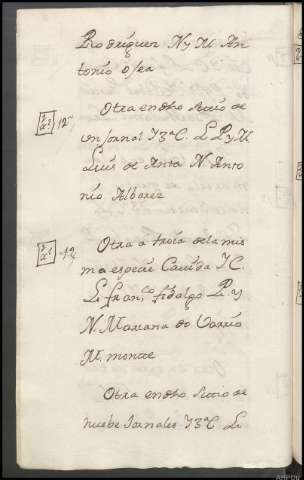 Rodriguez N y M An
tonio osea
Otra en dho sitio de
un jornal 13ª C. L P y M
Luis de Anta N. Anto
nio Albarez
Otra a troia dela mis
ma especie 1 C.
L fran.co fidalgo P. as
N. Mariana do Varrio
M. monte
Otra en dho sitio de
nuebe Jornales 13ª C L